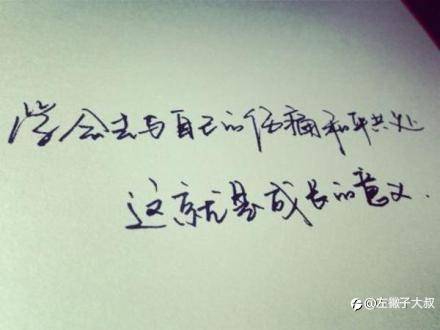 学会去与自己的伤痛和平共处
这就是成长的意义.
@左撇子大叔